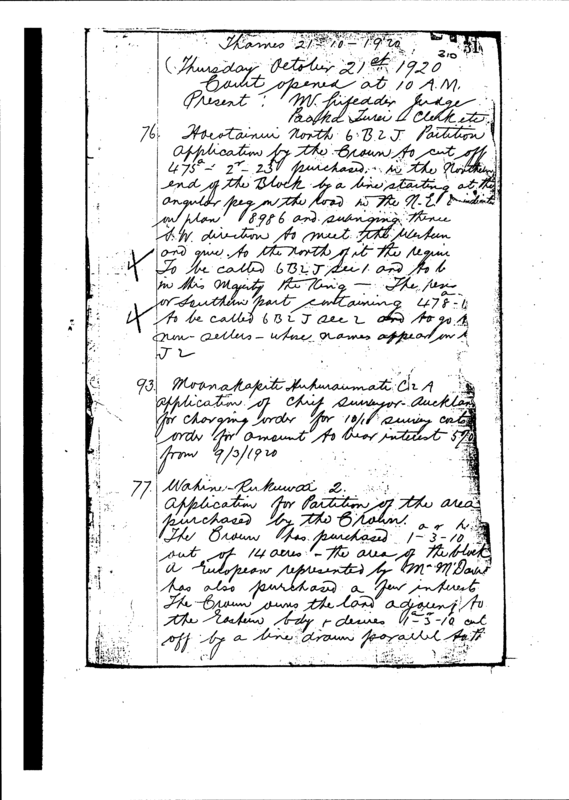 Thames 21-10-1920
310
31
(Thursday October 21st 1920
Court opened at 10 A.M.
Present: Mr Judge
Clerk etc
76. Hoeotainui North 6 B 2 J Partition
application by the Crown to cut off
475a - 2r - 23p purchased in the Northern
end of the Block by a line starting at the
angular peg on the road in the N.E.
on plan 8986 and swinging thence
S.W. direction to meet the Western
and give to the north of it the
To be called 6B2J Sec 1. and to b
in His Majesty the King - The
or Southern part containing 478-1
to be called 6B2J Sec 2 and to go t
non-sellers - whose names appear on
J 2
93. Moanakapiti Huhuraumati C12A
application of chief surveyor Auckland
for charging order for survey costs
order for amount to bear interest 5%
from 9/3/1920
77. Wahine-Rukuwai 2.
Application for Partition of the area
purchased by the Crown.
The Crown has purchased 1a-3r-10p
out of 14 acres - the area of the block
A European represented by Mr
has also purchased a few interests
The Crown owns the land adjoining to
the Eastern bdy & desires 1a-3r-10 cut
off by a line drawn parallel to th